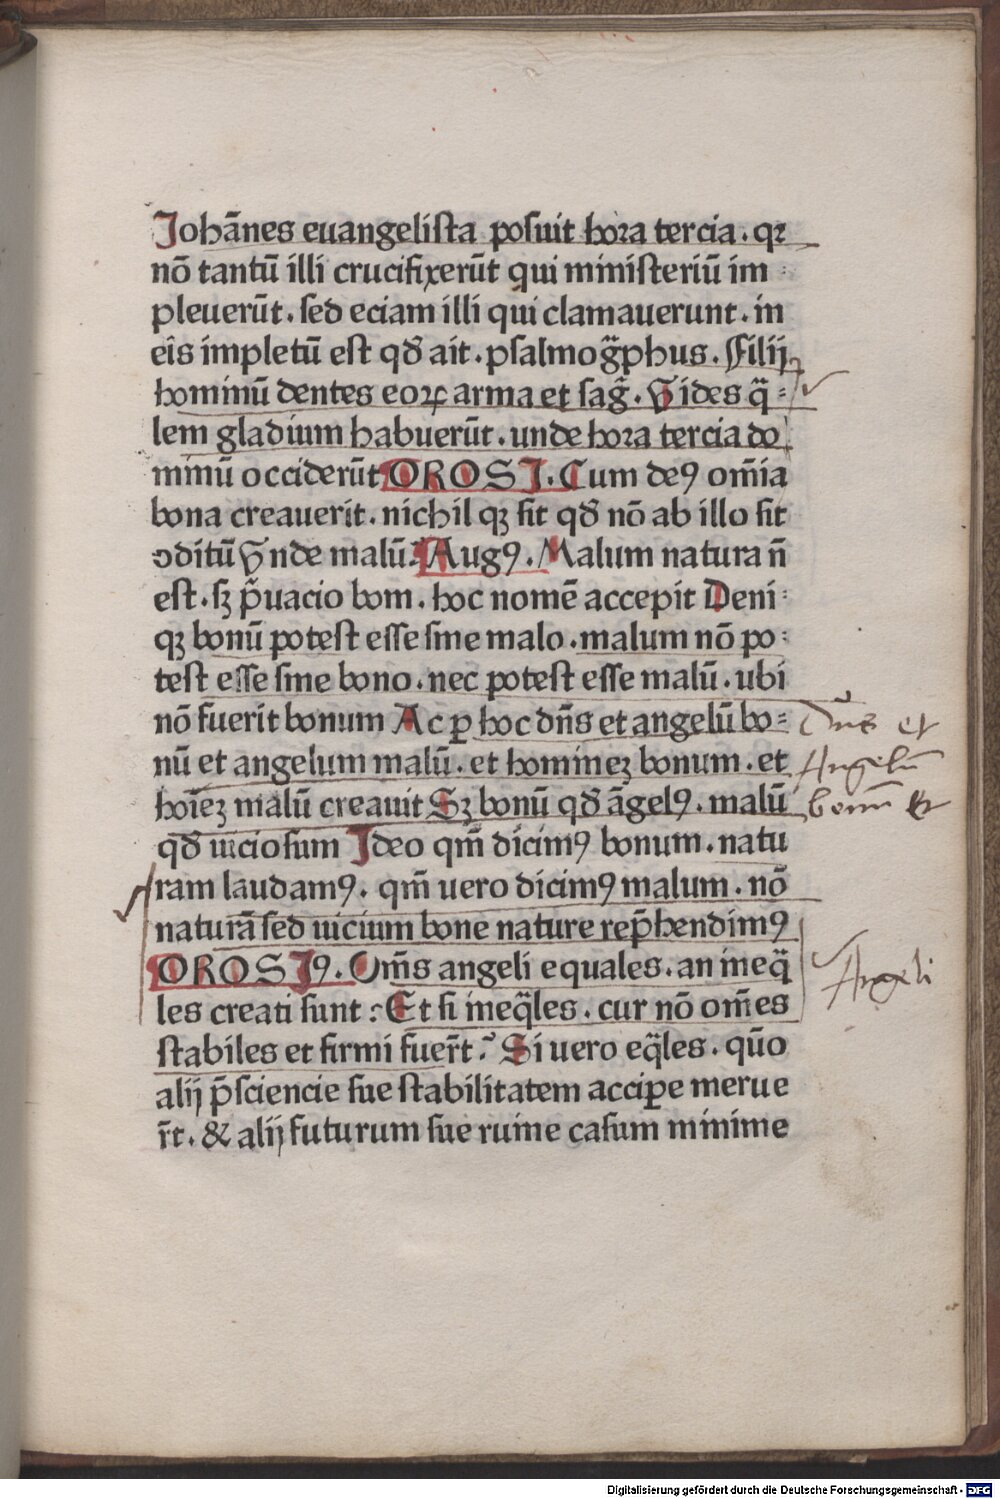 Johãnes euangelista posuit hora tercia. qꝛ
nõ tantũ illi crucifixerũt qui ministeriũ im
pleuerũt. sed eciam illi qui clamauerunt. in
eis impletũ est qđ ait. psalmog̃phus. Filij
hominũ dentes eoꝝ arma et sag̃. Vides q̃
lem gladium habuerũt. unde hora tercia do
minũ occiderũt OROSJ. Cum deꝰ om̃ia
bona creauerit. nichil qꝫ sit qđ nõ ab illo sit
ↄditũ Vnde malũ? Augꝰ. Malum natura ñ
est. sꝫ p̃uacio boni. hoc nomẽ accepit Deni
qꝫ bonũ potest esse sine malo. malum nõ po
test esse sine bono. nec potest esse malũ. ubi
nõ fuerit bonum Ac ꝑ hoc dñs et angelũ bo
nũ et angelum malũ. et homineꝫ bonum. et
hoĩeꝫ malũ creauit Sꝫ bonũ qđ ãgelꝰ. malũ
qđ uiciosum Jdeo qm̃ dicimꝰ bonum. natu
ram laudamꝰ. qm̃ uero dicimꝰ malum. nõ
naturã sed uicium bone nature rep̃hendimꝰ
OROSJꝰ. Om̃s angeli equales. an ineq̃
les creati sunt? Et si ineq̃les. cur nõ om̃es
stabiles et firmi fuer̃t? Si uero eq̃les. quõ
alij p̃sciencie sue stabilitatem acciꝑe merue
r̃t. & alij futurum sue ruine casum minime
Dñs et
Angelũ
bonũ et
Angeli
Digitalisierung gefördert durch die Deutsche Forschungsgemeinschaft - DFG